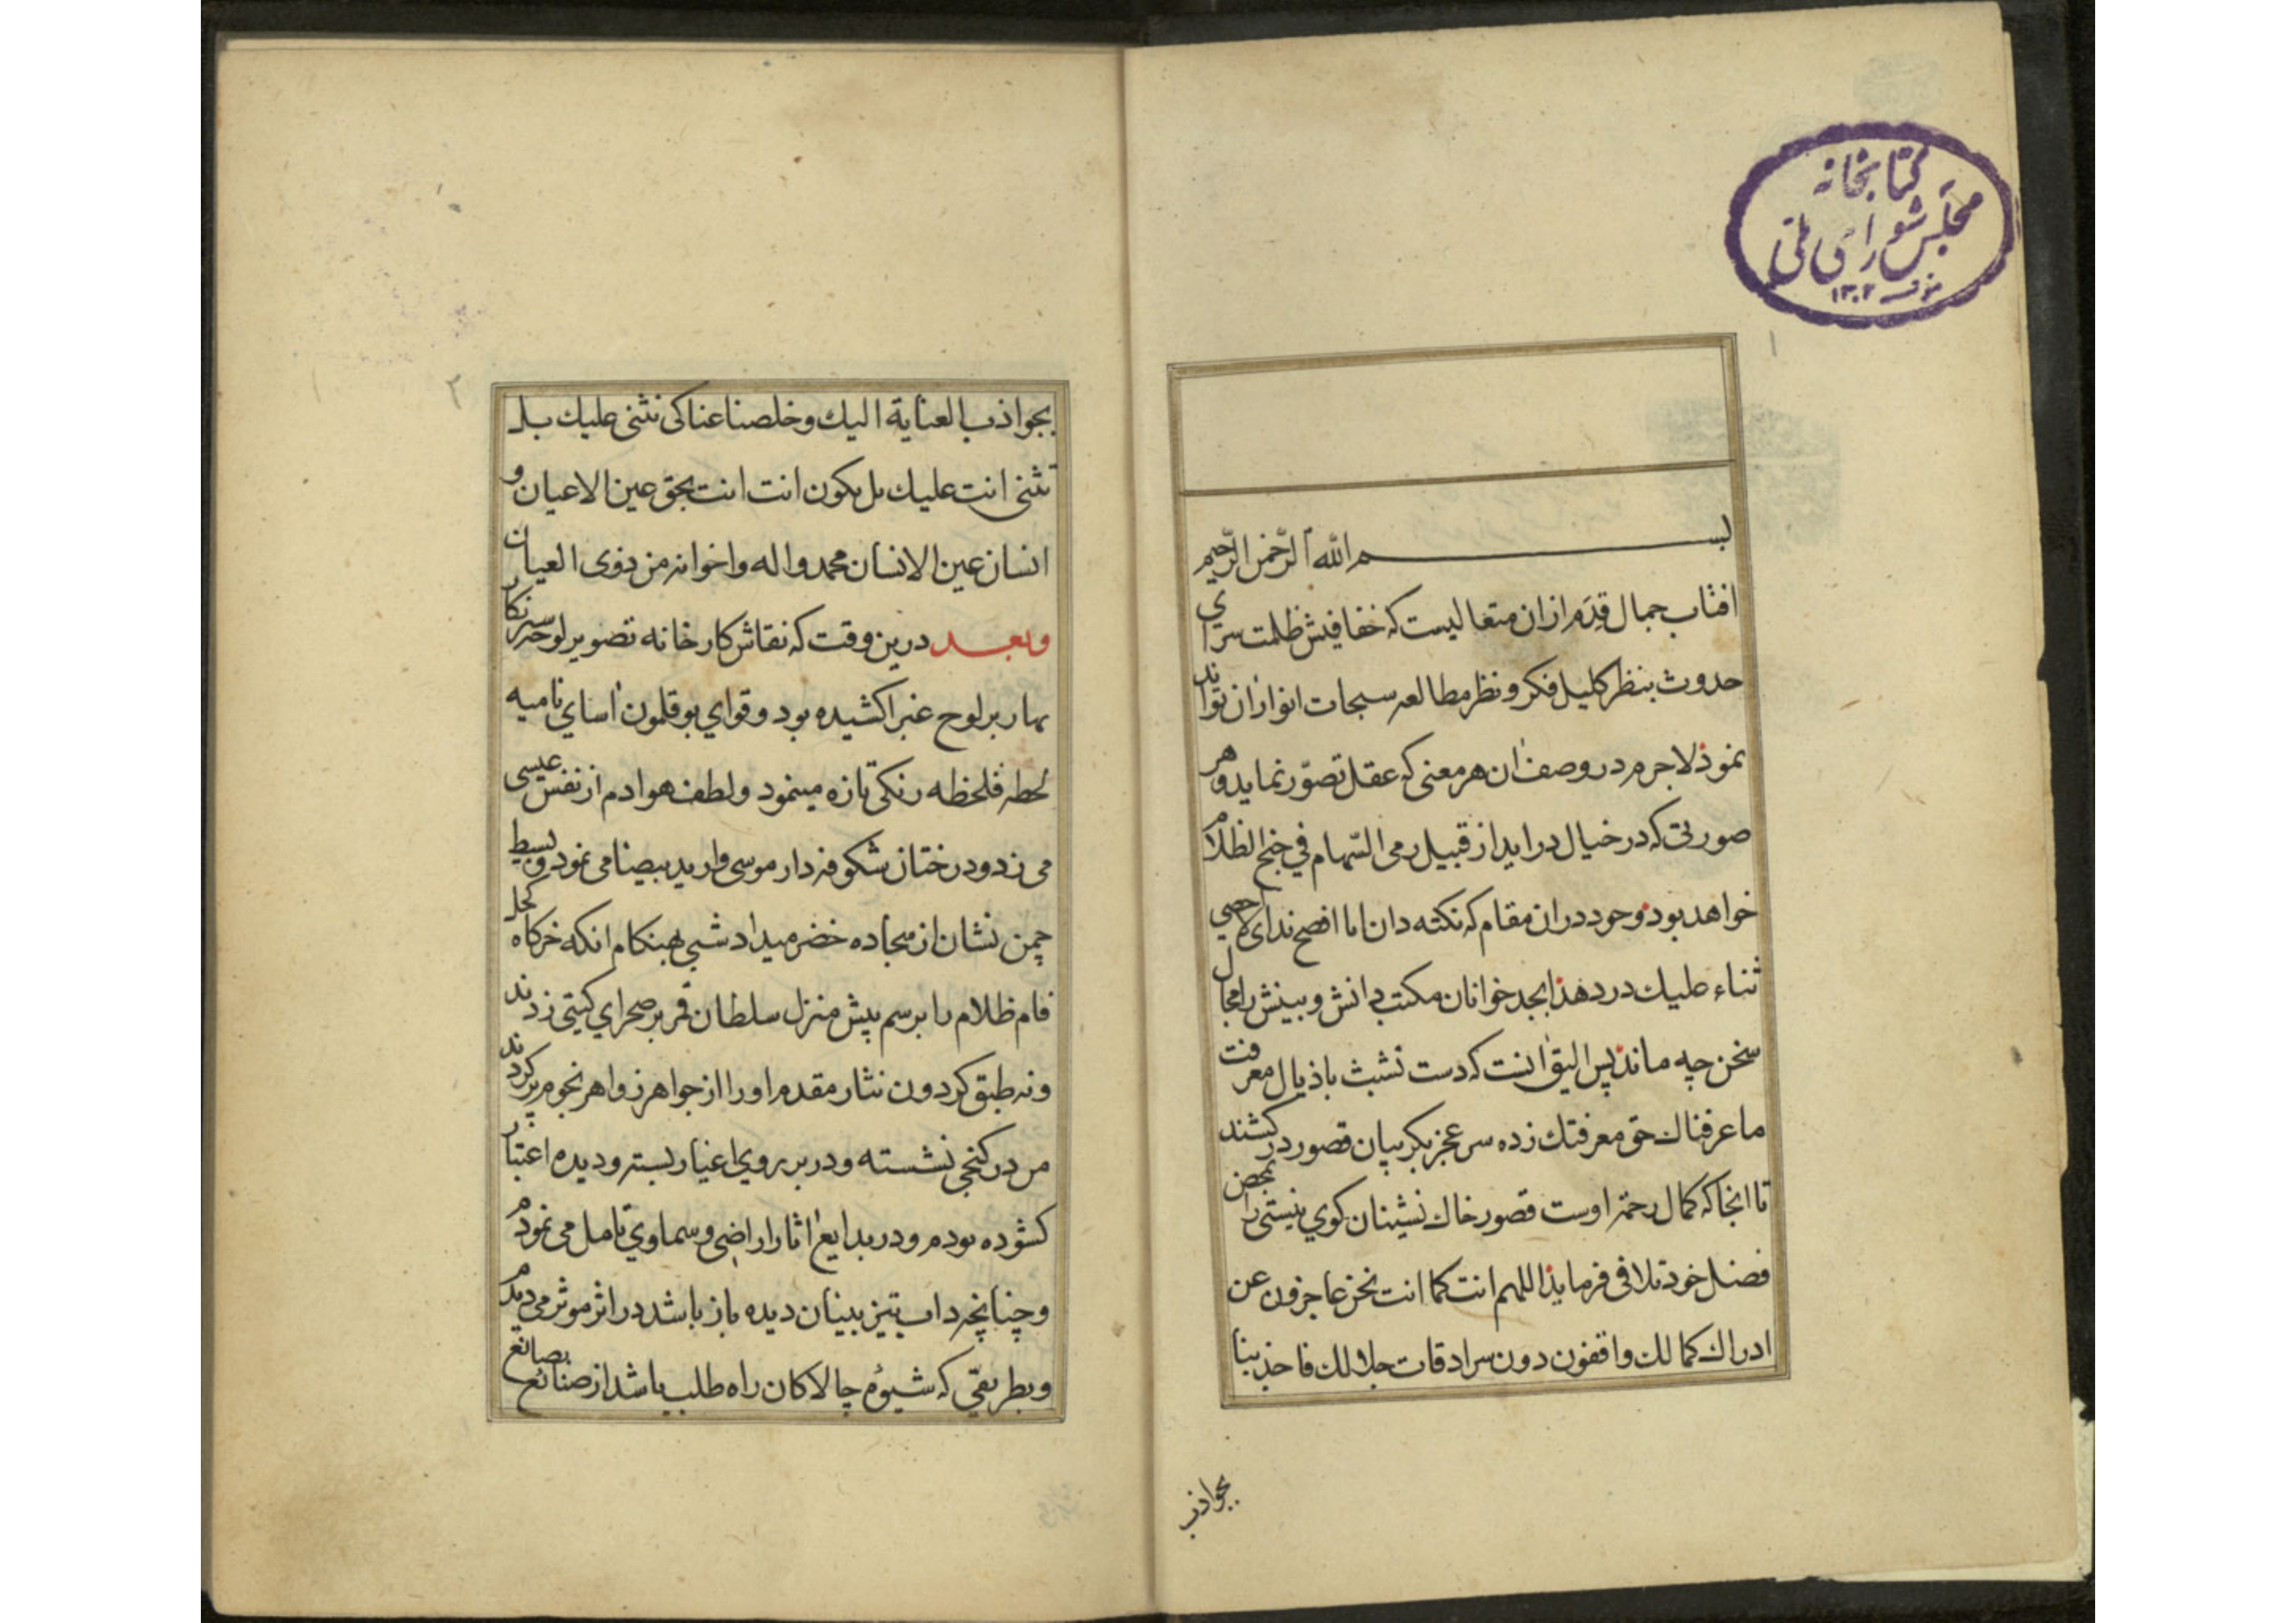 كتابخانه
مجلس شورای ملی
۱۳۰۲
۱
بسم الله الرحمن الرحیم
افتاب جمال قِدَم ازان متعالیست که خفافیش ظلمت سرای
حدوث بنظر کلیل فکر و نظر مطالعه سبحات انوار ان تواند
نمود لاجرم در وصف ان هر معنی که عقل تصوّر نماید و هر
صورتی که در خیال در اید از قبیل رمی السّهام في جنح الظلام
خواهد بود و چون در ان مقام که نکته دان انا افصح ندای لا احصی
ثناء علیك در دهد ابجد خوانان مکتب دانش و بینش را مجال
سخن چه ماند پس الیق انست که دست تشبث باذیال معرفت
ما عرفناك حق معرفتك زده سر عجز بکریبان قصور در کشند
تا انجا که کمال رحمة اوست قصور خاك نشینان کوی نیستی را بمحض
فضل خود تلافی فرماید اللهم انت کما انت نحن عاجزون عن
ادراك کمالك واقفون دون سرادقات جلالك فاجذبنا
بجواذب
۲
بجواذب العنایة الیك و خلصنا عنا کی نثنی علیك بل
تثنی انت علیك بل یکون انت انت بحق عین الاعیان و
انسان عین الانسان محمد و اله و اخوانه من ذوی العیان
و بعد درین وقت که نقاش کارخانه تصویر لوحه سرنکار
بهار بر لوح غبرا کشیده بود و قوای بوقلمون اسای نامیه
لحظه فلحظه رنکی تازه مینمود و لطف هوا دم از نفس عیسی
می زد و درختان شکوفه دار موسی وار ید بیضا می نمود و بسیط
چمن نشان از سجاده خضر میداد شبی هنکام انکه خرکاه کحل
فام ظلام را برسم پیش منزل سلطان قمر بر صحرای کیتی زدند
و نه طبق کردون نثار مقدم او را از جواهر زواهر نجوم پر کردند
من در کنجی نشسته و در بر روی اغیار بسته و دیده اعتبار
کشوده بودم و در بدایع اثار اراضی و سماوی تامل می نمودم
و چنانچه داب تیز بینان دیده باز باشد در اثر موثر می دیدم
و بطریقی که شیوهٔ چالاکان راه طلب باشد از صنائع بصانع